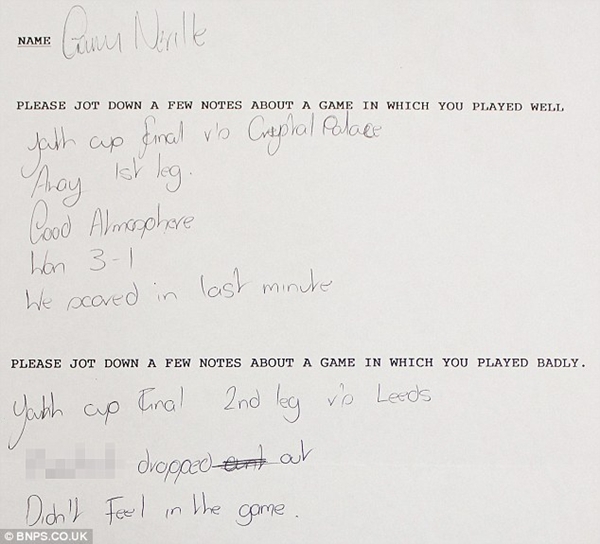 NAME Gary Neville
PLEASE JOT DOWN A FEW NOTES ABOUT A GAME IN WHICH YOU PLAYED WELL
Youth cup final v's Crystal Palace
Away 1st leg.
Good Atmosphere
Won 3-1
We scored in last minute
PLEASE JOT DOWN A FEW NOTES ABOUT A GAME IN WHICH YOU PLAYED BADLY.
Youth cup Final 2nd leg v's Leeds
dropped out
Didn't Feel in the game.
© BNPS.CO.UK